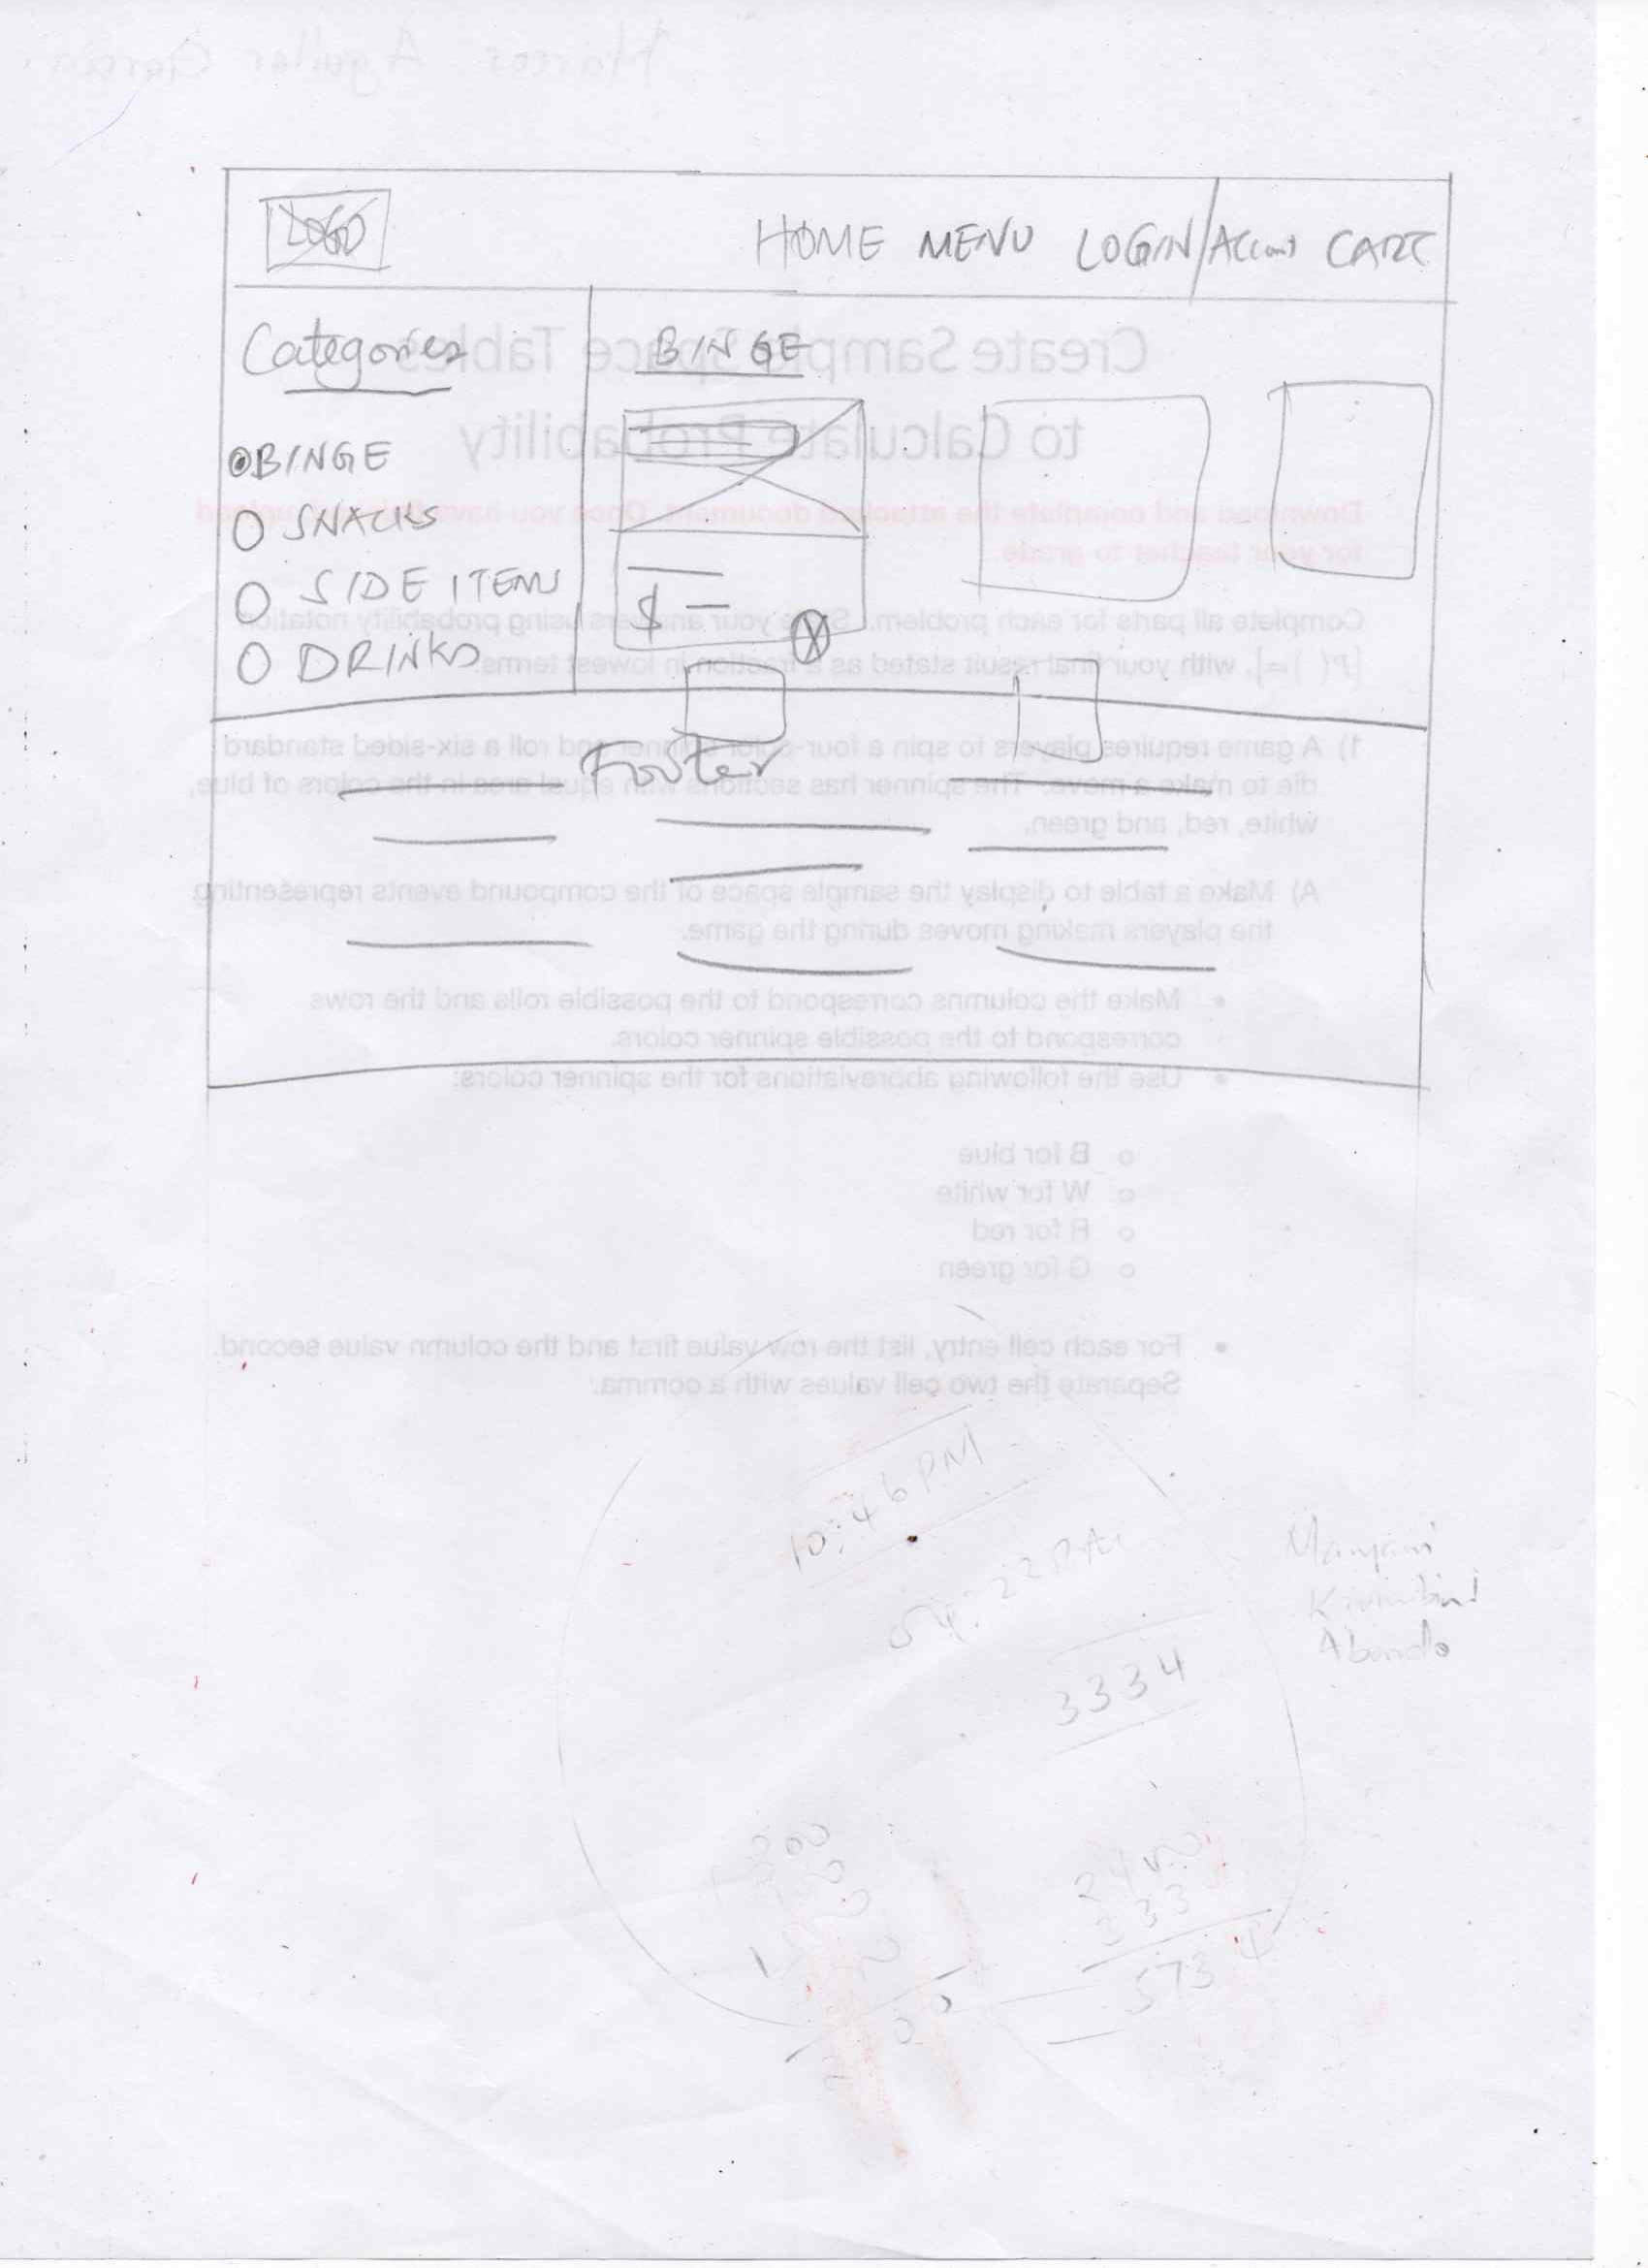 Marcos Aguilar Garcia
LOGO
HOME MENU LOGIN/Account CART
Categories
BINGE
Create Sample Space Tables
to Calculate Probability
BINGE
SNACKS
SIDE ITEMS
DRINKS
$
Download and complete the attached document. Once you have upload
for your teacher to grade.
Complete all parts for each problem. State your answers using probability notation
[P( )=], with your final result stated as a fraction in lowest terms.
Footer
1) A game requires players to spin a four-color spinner and roll a six-sided standard
die to make a move. The spinner has sections with equal area in the colors of blue,
white, red, and green.
A) Make a table to display the sample space of the compound events representing
the players making moves during the game.
• Make the columns correspond to the possible rolls and the rows
correspond to the possible spinner colors.
• Use the following abbreviations for the spinner colors:
o B for blue
o W for white
o R for red
o G for green
• For each cell entry, list the row value first and the column value second.
Separate the two cell values with a comma.
10:46 PM
3334
5734